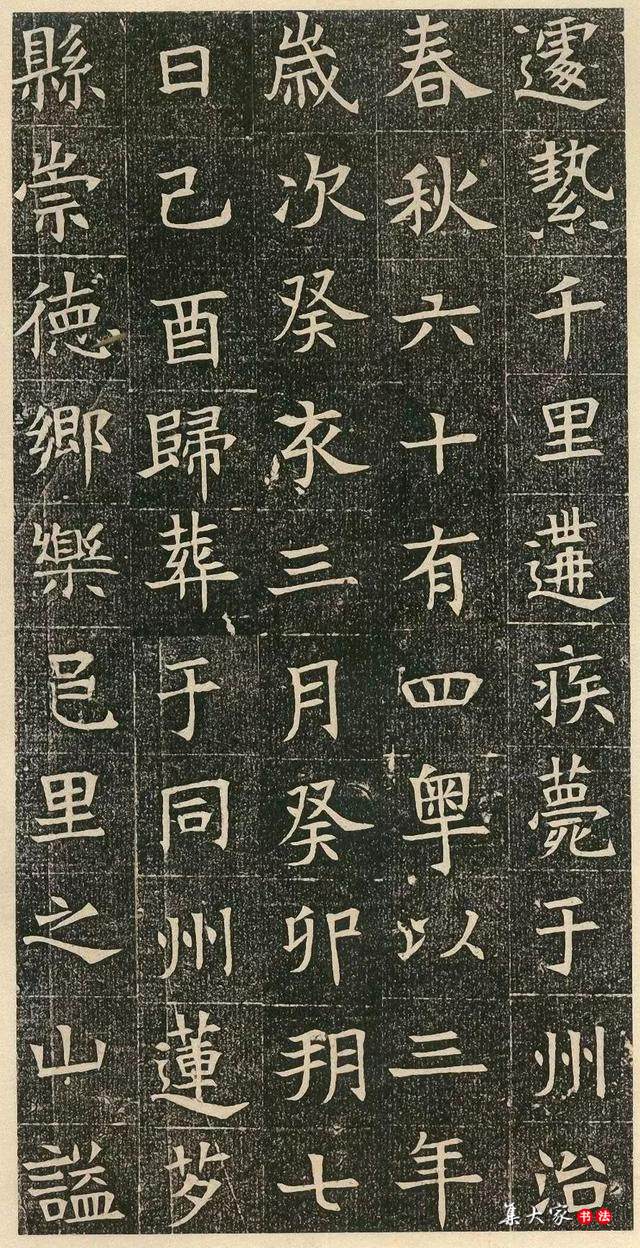 遽縶千里遘疾薨于州治
春秋六十有四粤以三年
歲次癸亥三月癸卯朔七
日己酉歸葬于同州蓮芍
縣崇德鄉樂邑里之山謚
集大家 书法